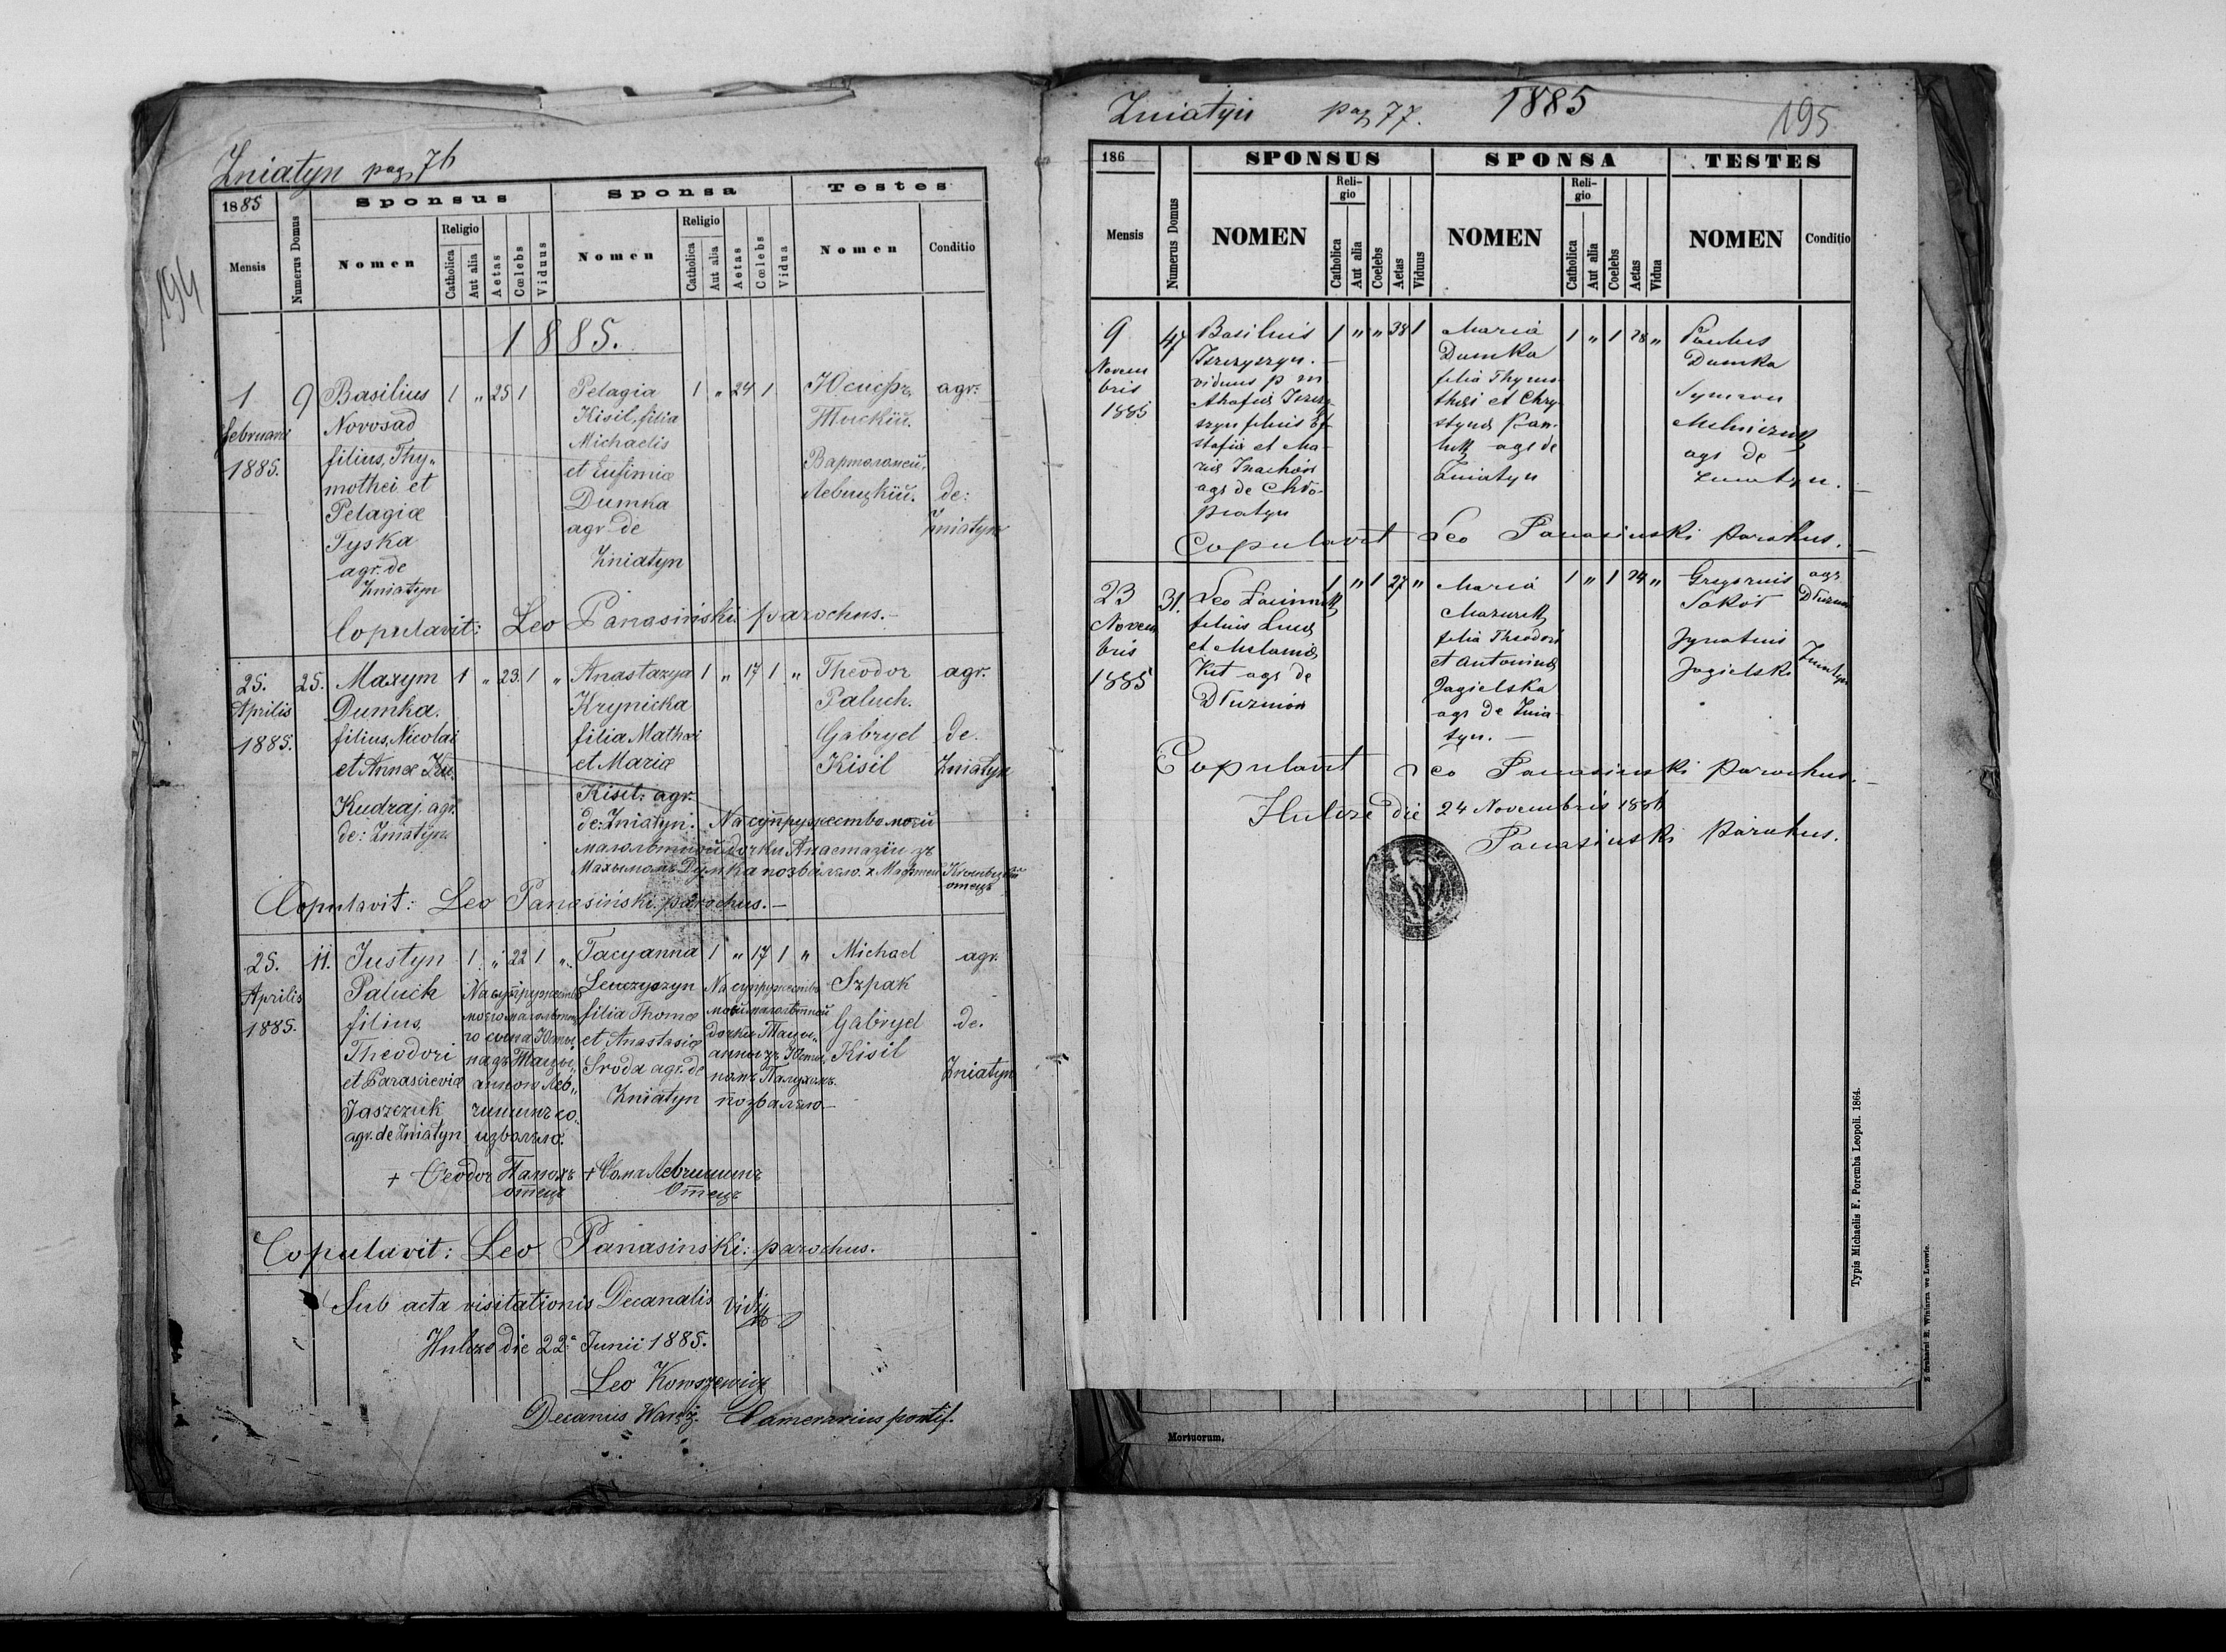 Zniatyn pag 76
194
1885
Sponsus
Sponsa
Testes
Mensis
Numerus Domus
Nomen
Religio
Catholica
Aut alia
Aetas
Cœlebs
Viduus
Nomen
Religio
Catholica
Aut alia
Aetas
Cœlebs
Vidua
Nomen
Conditio
1885.
1
februarii
1885.
9
Basilius
Novosad
filius, Thy„
mothei et
Pelagiæ
Tyska
agr. de
Zniatyn
1 „ 25 1
Pelagia
Kisil, filia
Michaelis
et Eufimiæ
Dumka
agr. de
Zniatyn
1 „ 24 1
Юсифъ
Варталамей
Левицкій.
agr.
de:
Zniatyn
Copulavit: Leo Panasiński parochus.-
25.
Aprilis
1885.
25.
Maxym
Dumka.
filius, Nicolai
et Annæ Ku.
Kudraj. agr.
de: Zniatyn
1 „ 23. 1 „
Anastazya
Krynicka
filia Mathæi
et Mariæ
Kisil. agr.
de: Zniatyn.
1 „ 17 1 „
Theodor
Paluch.
Gabryel
Kisil
agr.
de.
Zniatyn
На супружество моей
малолѣтной дочки Анастазіи зъ
Махымомъ Думка позваляю.
отецъ
Copulavit: Leo Panasiński parochus.-
25.
Aprilis
1885.
11.
Justyn
Paluch
filius,
Theodori
et Parasceviæ
Jaszczuk
agr. de Zniatyn
1 „ 22 1 „
На супружество
мого малолѣтно
го сына Юсты
изволяю.
Tacyanna
Lewczyszyn
filia Thomæ
et Anastasiæ
Sroda agr. de
Zniatyn
1 „ 17 1 „
На супружество
моей малолѣтней
дочки Тацы„
анны зъ Юсты„
номъ Палухомъ
позваляю
Michael
Szpak
Gabryel
Kisil
agr.
de.
Zniatyn
+ Ѳеодоr Палюхъ
отецъ
+ Ѳома Левчишинъ
Отецъ
Copulavit: Leo Panasinski: parochus.
Sub acta visitationis Decanalis vidi
Hulcze die 22ª Junii 1885.
Leo
Decanus Waręż. Camerarius pontif.
Zniatyn pag 77. 1885
195
186
SPONSUS
SPONSA
TESTES
Mensis
Numerus Domus
NOMEN
Reli-
gio
Catholica
Aut alia
Coelebs
Aetas
Viduus
NOMEN
Reli-
gio
Catholica
Aut alia
Coelebs
Aetas
Vidua
NOMEN
Conditio
9
Novem
bris
1885
47
Basilius
viduus p m
szyn filius Ef
stafii et Ma-
riæ
agr de Chło-
piatyn
1 „ „ 38 1
Maria
Dumka
filia Thymo
thei et Chry
stynæ Paw-
luk agr de
Zniatyn
1 „ 1 28 „
Paulus
Dumka
Symeon
Melniczuk
agr de
Zniatyn.
Copulavit Leo Panasinski Parochus.
23
Novem
bris
1885
31.
Leo
filius Lucæ
et Melaniæ
Kit agr de
Dłużniow
1 „ 1 27 „
Maria
Mazurek
filia Theodori
et Antoninæ
Jagielska
agr de Znia
tyn.
1 „ 1 24 „
Gregorius
Sokół
Ignatius
Jagielski
agr
Dłużniow
Zniatyn
Copulavit Leo Panasinski Parochus.
Hulcze die 24 Novembris 1886
Panasinski Parochus.
Typis Michaelis F. Poremba Leopoli. 1864.
Z drukarni E. Winiarza we Lwowie.
Mortuorum.